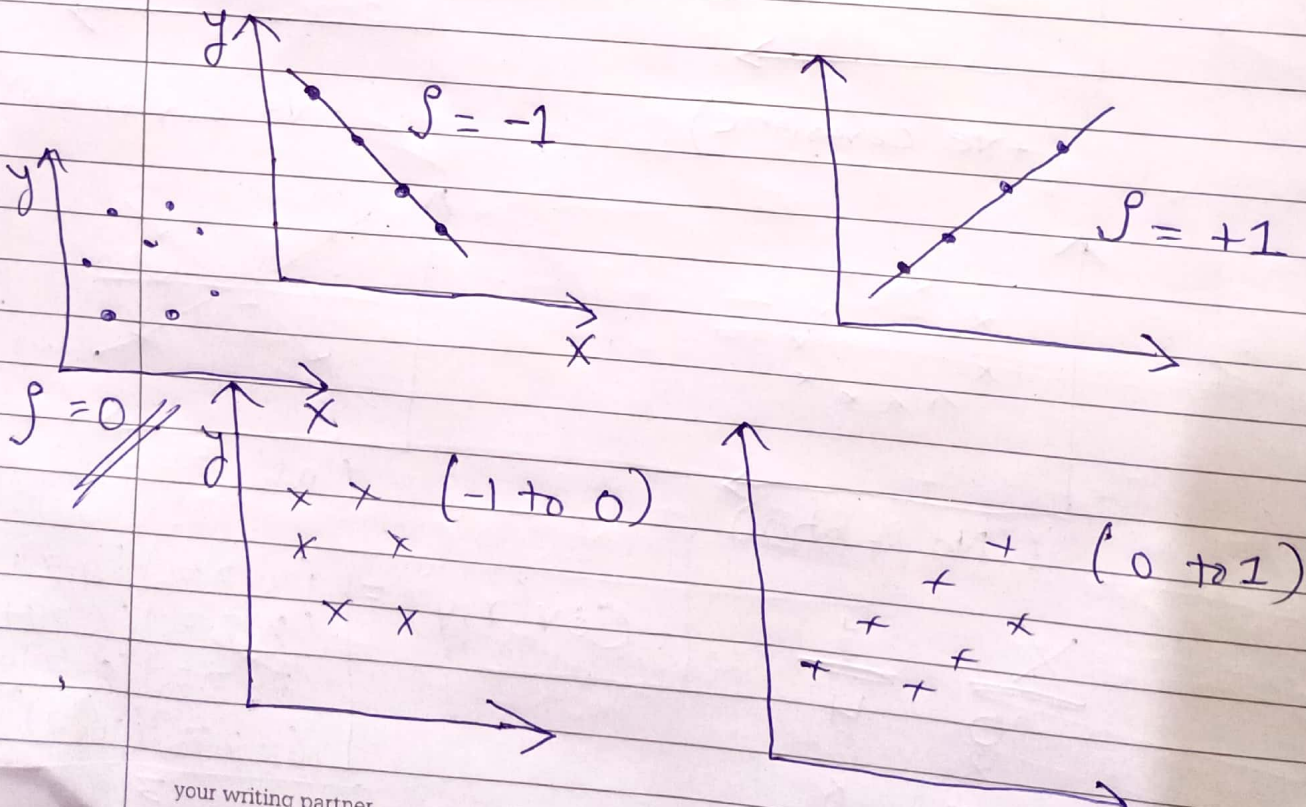 y
ρ = -1
x
ρ = +1
y
x
ρ = 0
y
(-1 to 0)
(0 to 1)
your writing partner